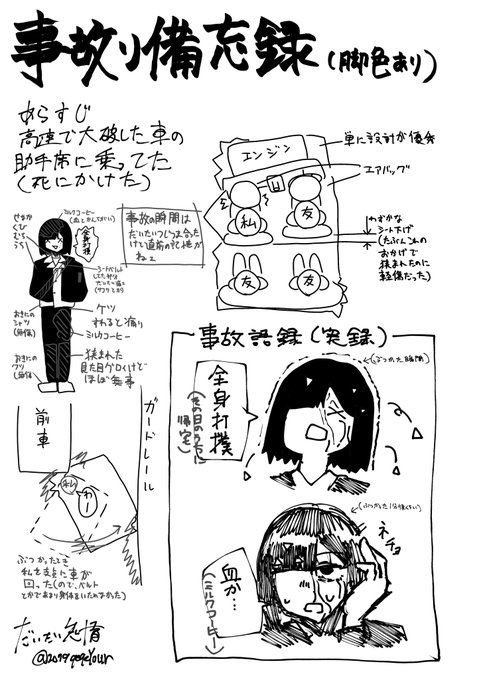 事故り備忘録(脚色あり)
あらすじ
高速で大破した車の
助手席に乗ってた
(死にかけた)
エンジン
単に設計が優秀
エアバッグ
私
友
友
友
わずかな
シート下げ
(たぶんこれの
おかげで
挟まれたのに
軽傷だった)
事故の瞬間は
だいたいつじつまあうだ
けど直前の記憶が
ねぇ
ミルクコーヒー
全身打撲
シートベルト
ケツ
すれると痛い
ミルクコーヒー
おきにの
シャツ
(無傷)
おきにの
クツ
(無傷)
挟まれた
見た目グロくけど
ほぼ無事
前車
ガードレール
私
わー
ぶつかったとき
私を支点に車が
回った(ので、ベルト
だいたい怠惰
事故語録(実録)
(ぶつかった瞬間)
全身打撲
(その日のうちに
帰宅)
(ぶつかった1分後くらい)
ネチョ
血が…
(ミルクコーヒー)